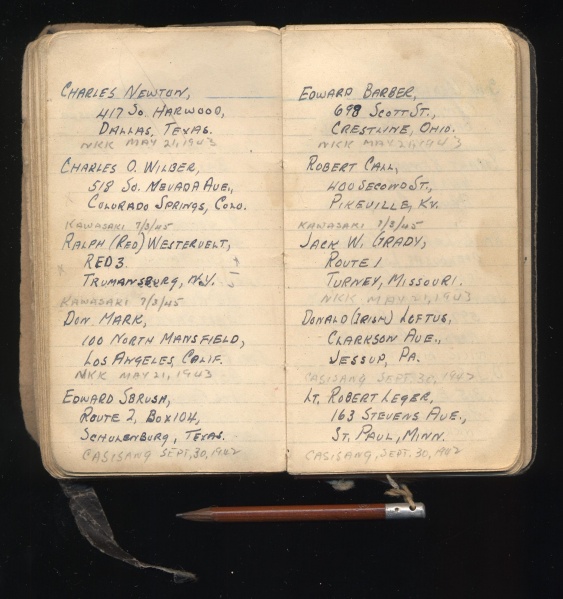 CHARLES NEWTON,
417 SO. HARWOOD,
DALLAS, TEXAS.
NKK MAY 21, 1943
CHARLES O. WILBER,
518 SO. NEVADA AVE.,
COLORADO SPRINGS, COLO.
KAWASAKI 7/3/45
RALPH (RED) WESTERVELT,
RED 3
TRUMANSBURG, N.Y.
KAWASAKI 7/3/45
DON MARK,
100 NORTH MANSFIELD,
LOS ANGELES, CALIF.
NKK MAY 21, 1943
EDWARD SBRUSH,
ROUTE 2, BOX 104,
SCHULENBURG, TEXAS.
CASISANG SEPT, 30, 1942
EDWARD BARBER,
698 SCOTT ST.,
CRESTLINE, OHIO.
NKK MAY 21, 1943
ROBERT CALL,
400 SECOND ST.,
PIKEVILLE, KY.
KAWASAKI 7/3/45
JACK W. GRADY,
ROUTE 1
TURNEY, MISSOURI.
NKK MAY 21, 1943
DONALD (IRISH) LOFTUS,
CLARKSON AVE.,
JESSUP, PA.
CASISANG SEPT. 30, 1942
LT. ROBERT LEGER,
163 STEVENS AVE.,
ST. PAUL, MINN.
CASISANG, SEPT. 30, 1942